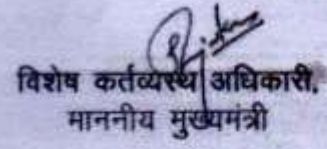 विशेष कर्तव्यस्थ अधिकारी,
माननीय मुख्यमंत्री